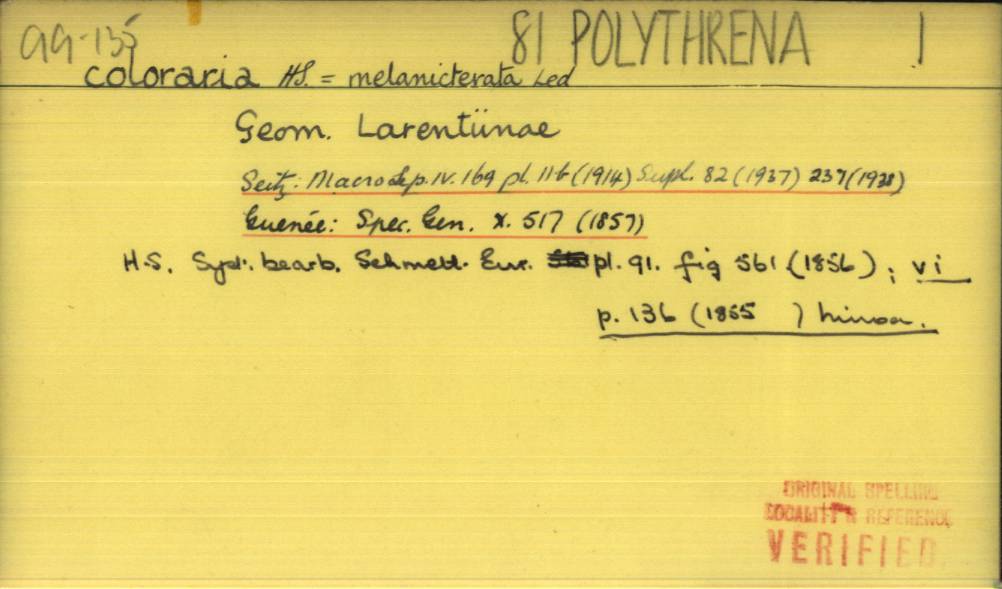 99-135 81 POLYTHRENA 1
coloraria HS. = melanicterata Led
Geom. Larentiinae
Seitz: Macrolep. IV. 169 pl. 11-b (1914) Suppl. 82 (1937) 237 (1938)
Guenée: Spec. Gen. X. 517 (1857)
H.S. Syst. bearb. Schmett. Eur. pl. 91. fig 561 (1856); vi
p. 136 (1855 )
ORIGINAL SPELLING
LOCALITY & REFERENCE
VERIFIED